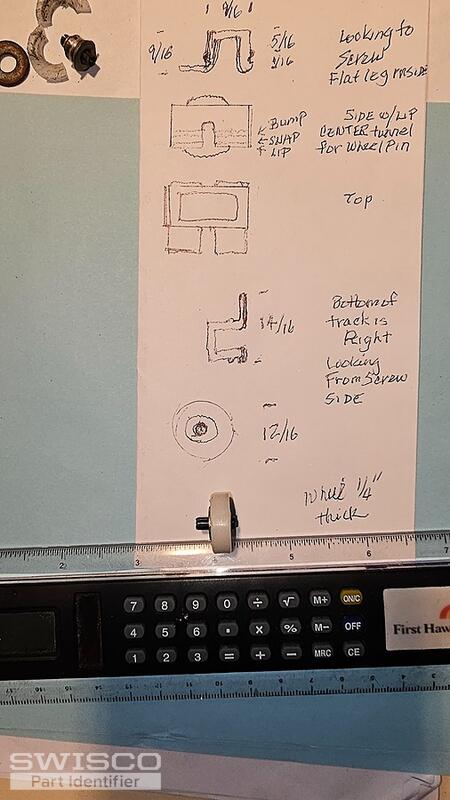 9/16
9/16
5/16
1/16
Looking to
Screw
Flat leg INSIDE
BUMP
SNAP
LIP
SIDE w/ LIP
CENTER tunnel
for Wheel Pin
Top
14/16
Bottom of
track is
Right
Looking
From Screw
SIDE
12/16
Wheel 1/4"
thick
2 3 5 6 7
7 8 9 0 ÷ √ M+ ON/C
4 5 6 . x % M- OFF
1 2 3 = + - MRC CE
First Haw
SWISCO
Part Identifier